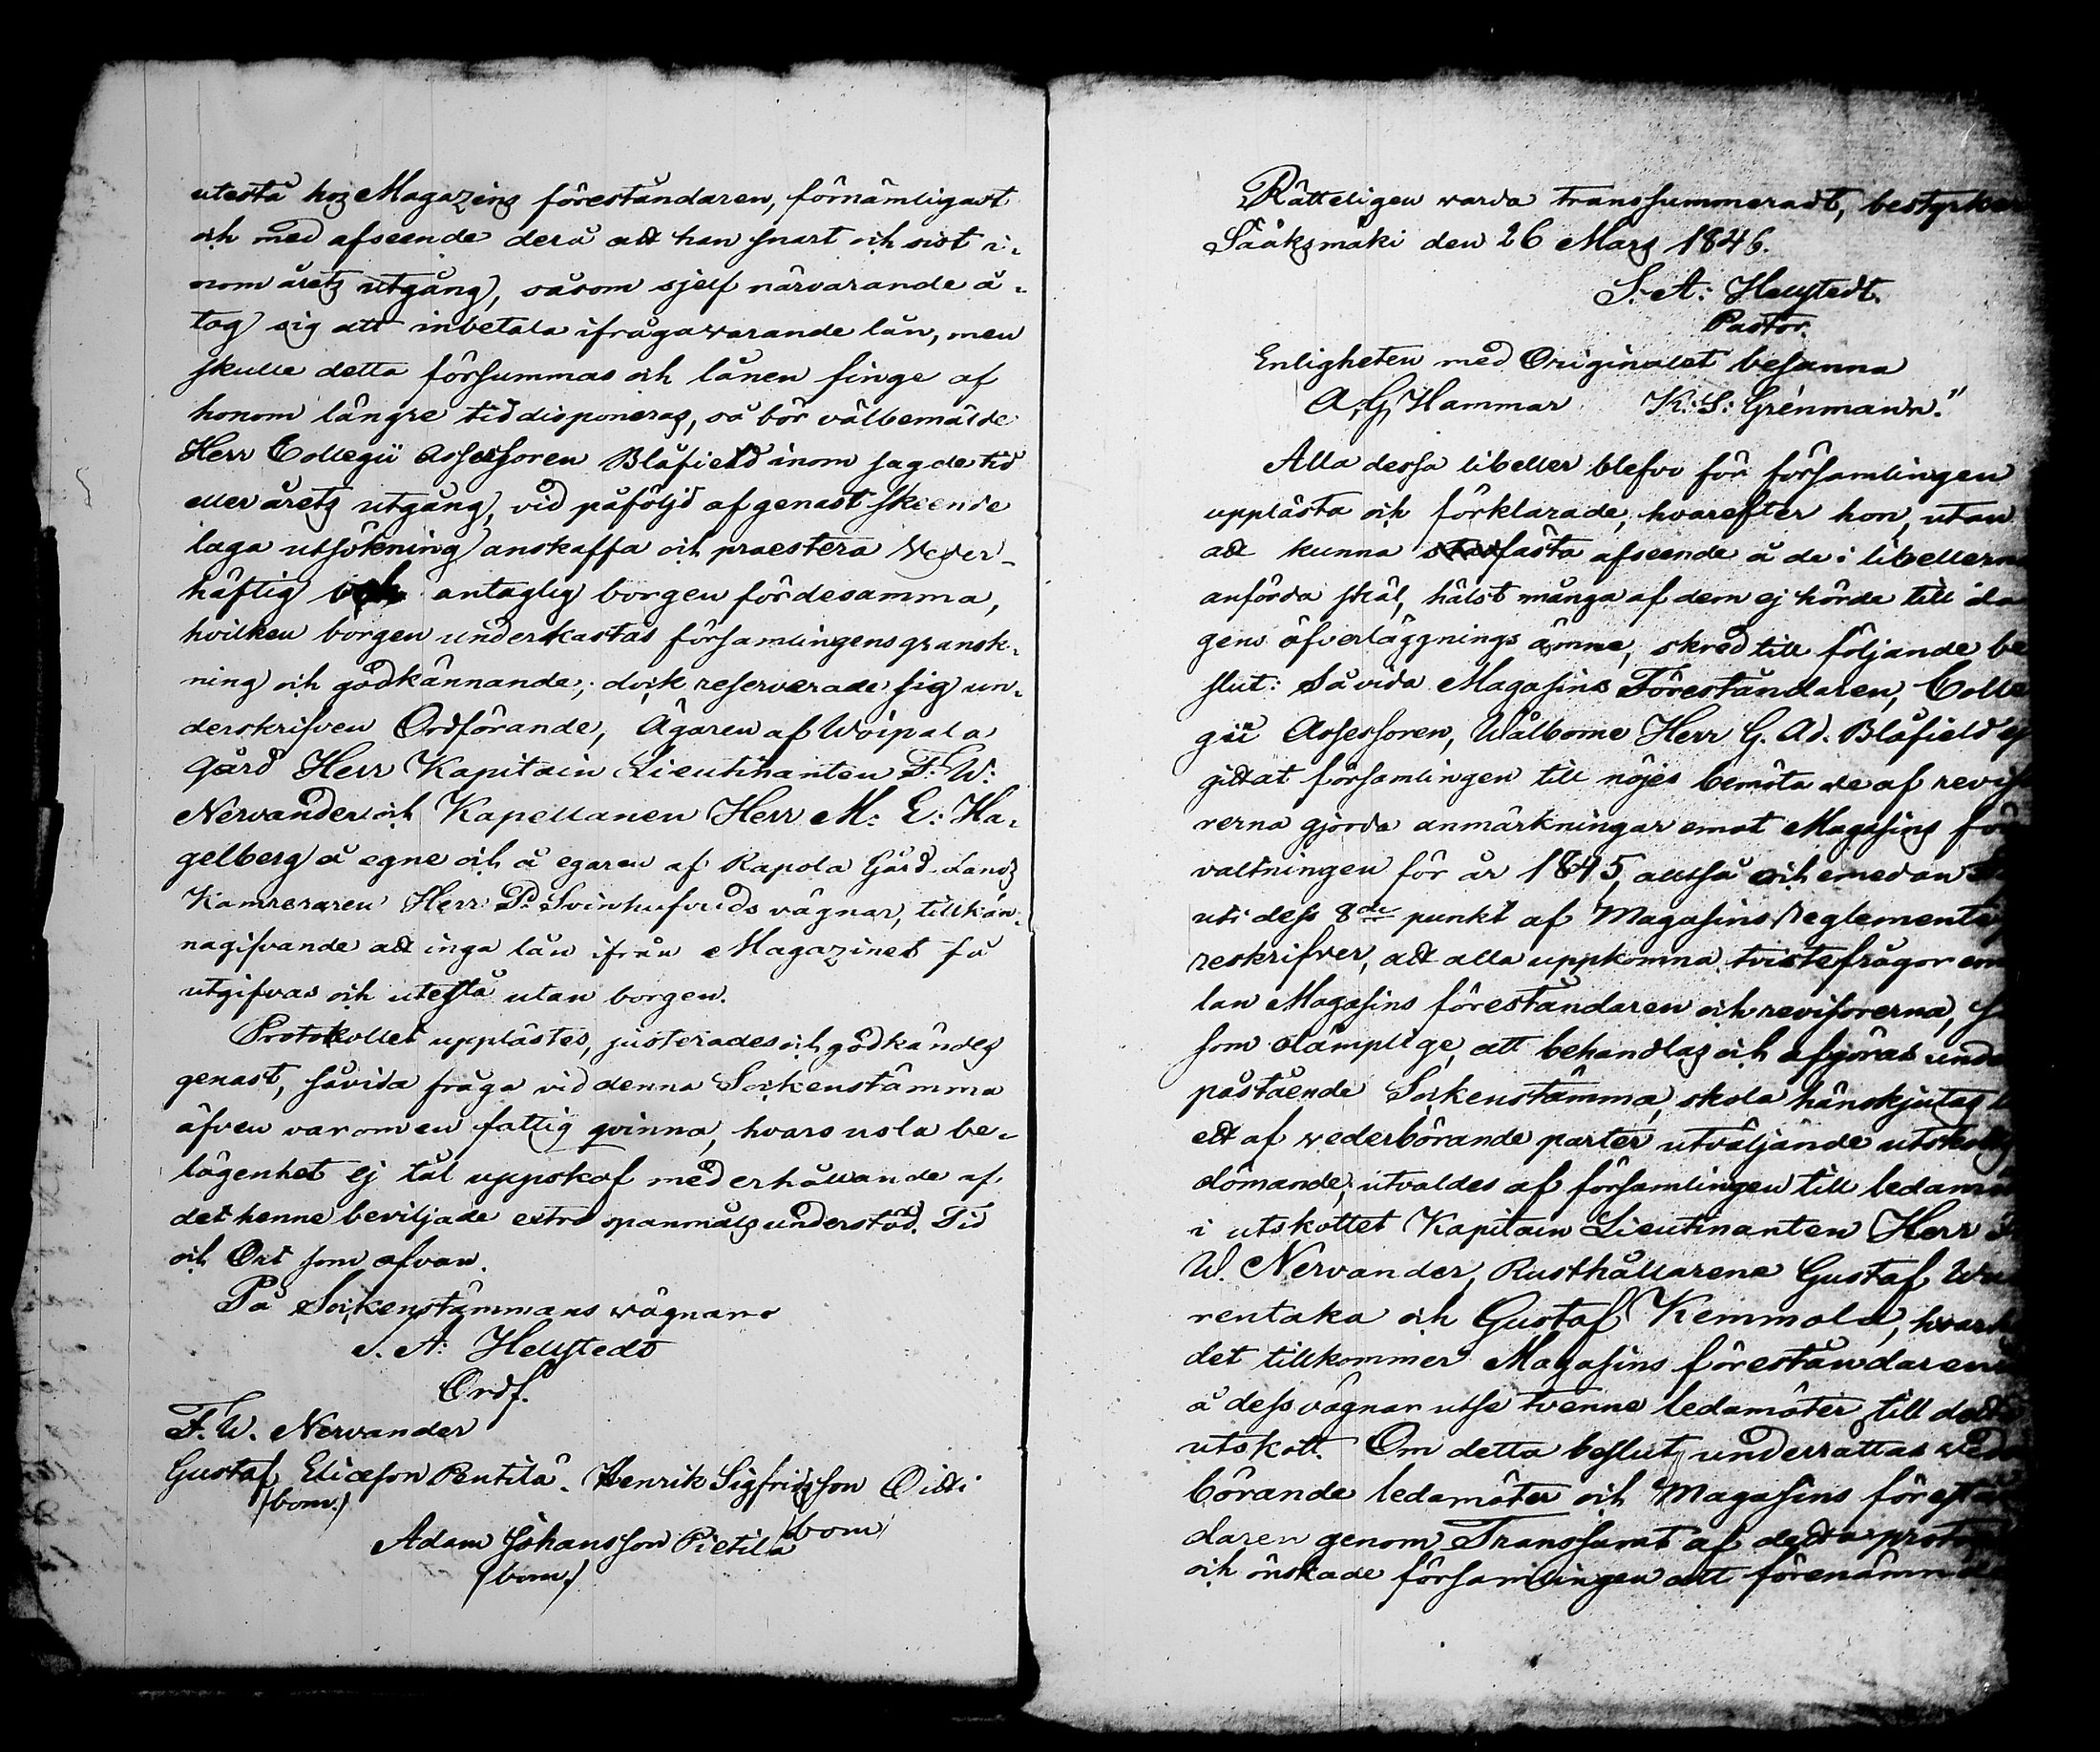 utestå hos Magazins föreståndaren, förnämligast
och med afseende derå att han snart och sist i-
nom årets utgång, såsom sjelf närvarande å-
tog sig att inbetala ifrågavarande lån, men
skulle detta försummas och lånen finge af
honom längre tid disponeras, så bör välbemälde
Herr Collegii Assessoren Blåfield inom sagde tid
eller årets utgång, vid påföljd af genast skeende
laga utsökning anskaffa och praestera veder-
häftig och antaglig borgen för desamma,
hvilken borgen underkastas församlingens gransk-
ning och godkännande; dock reserverade sig un-
derskrifven Ordförande, Ägaren af Woipala
Gård Herr Kapitain Lieutinanten F. W.
Nervander och Kapellanen Herr M: E: Ha-
gelberg å egne och å egaren af Rapola Gård Lands
Kamreraren Herr P. Svinhufvuds vägnar, tillkän-
nagifvande att inga lån ifrån Magazinet få
utgifvas och utestå utan borgen.
Protokollet upplästes, justerades och godkändes
genast, såvida fråga vid denna Sockenstämma
äfven var om en fattig qvinna, hvars usla be-
lägenhet ej tål uppskof med erhållande af
det henne beviljade extra spanmåls understöd. Tid
och Ort som ofvan.
På Sockenstämmans vägnar
S. A: Hellstedt
Ordf.
F. W. Nervander
Gustaf Ericsson Pentilä. Henrik Sigfridsson Oitti
(bom.)
Adam Johansson Pietilä (bom)
(bom.)
Rätteligen varda transsummeradt, bestyrker
Sääksmäki den 26 Mars 1846.
S: A: Hellstedt.
Pastor.
Enligheten med Originalet besanna
A. G. Hammar K: S: Grénmann."
Alla dessa libeller blefvo för församlingen
upplästa och förklarade, hvarefter hon, utan
att kunna fästa afseende å de i libellerna
anförda skäl, hälst många af dem ej hörde till da
gens öfverläggnings ämne, skred till följande be
slut: Såvida Magasins Föreståndaren, Colle
gii Assessoren, Wälborne Herr G. Ad. Blåfield ej
gittat församlingen till nöjes bemöta de af reviso
rerna gjorda anmärkningar emot Magasins för
valtningen för år 1845, alltså och emedan
uti dess 8de punkt af Magasins Reglemente
reskrifver, att alla uppkomna tvistefrågor em
lan Magasins föreståndaren och revisorerna, så
som olämplige, att behandlas och afgöras unde
påstående Sockenstämma, skola hänskjutas
ett af vederbörande parter utväljande utskotts
dömande; utvaldes af församlingen till ledamö
i utskottet Kapitain Lieutinanten Herr F
W. Nervander, Rusthållarene Gustaf Wuo
rentaka och Gustaf Kemmola, hvar
det tillkommer Magasins föreståndaren
å dess vägnar utse tvenne ledamöter till detta
utskott. Om detta beslut underrättas ved
börande ledamöter och Magasins förestån
daren genom Transsumt af detta proto
och önskade församlingen att förenämnde